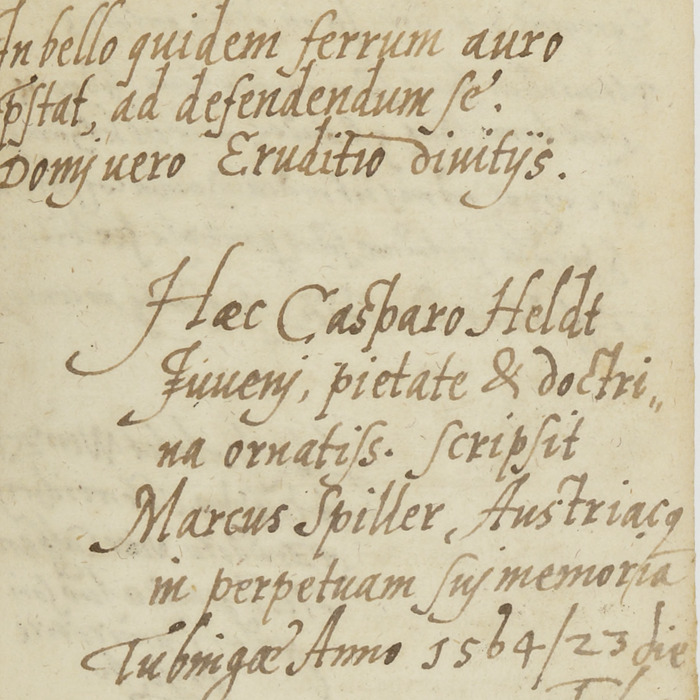 In bello quidem ferrum auro
p̄stat, ad defendendum se.
Domj vero Eruditio divitijs.
Hæc Casparo Heldt
Juvenj, pietate & doctri„
na ornatiss. scripsit
Marcus Spiller, Austriacꝯ
in perpetuam suj memoriā
Tubingæ Anno 1564/23 die